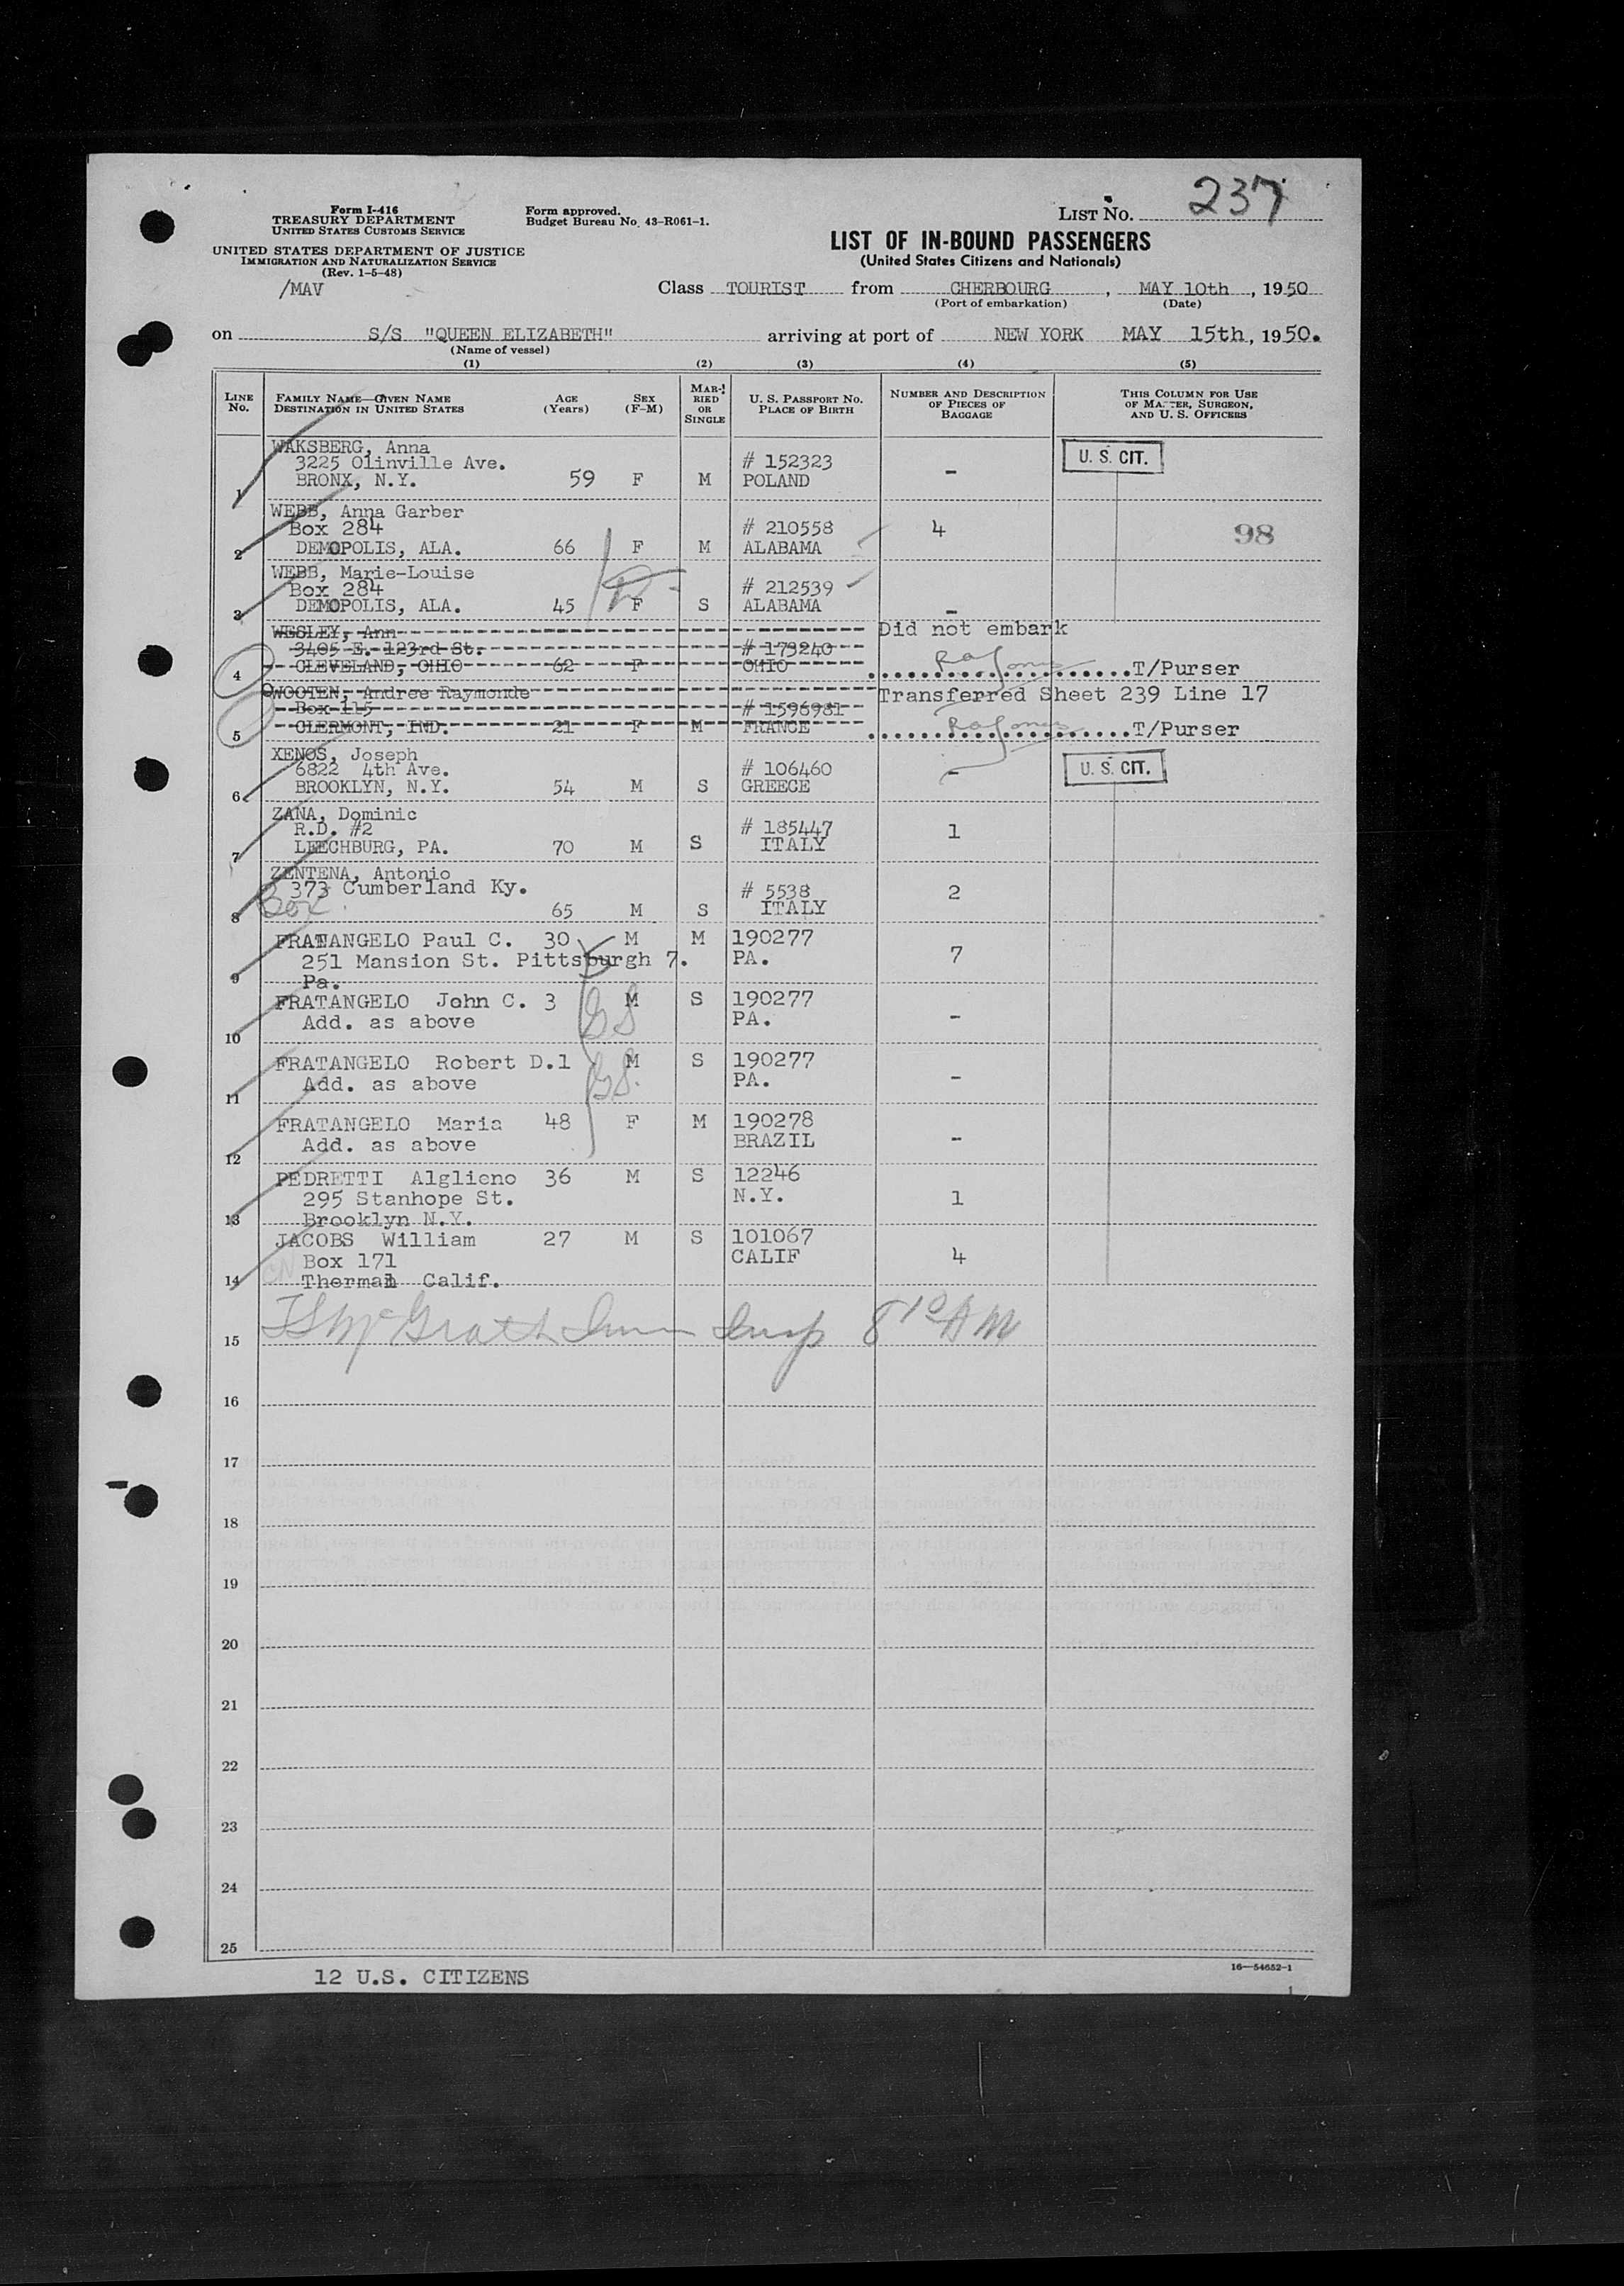 237
Form I-416
TREASURY DEPARTMENT
UNITED STATES CUSTOMS SERVICE
Form approved.
Budget Bureau No. 43-R061-1.
LIST NO.
UNITED STATES DEPARTMENT OF JUSTICE
IMMIGRATION AND NATURALIZATION SERVICE
(Rev. 1-5-48)
/MAV
LIST OF IN-BOUND PASSENGERS
(United States Citizens and Nationals)
Class TOURIST from CHERBOURG, MAY 10th, 1950
(Port of embarkation) (Date)
on S/S "QUEEN ELIZABETH" arriving at port of NEW YORK MAY 15th, 1950.
(Name of vessel)
(1) (2) (3) (4) (5)
LINE No. FAMILY NAME—GIVEN NAME DESTINATION IN UNITED STATES AGE (Years) SEX (F-M) MARRIED OR SINGLE U. S. PASSPORT No. PLACE OF BIRTH NUMBER AND DESCRIPTION OF PIECES OF BAGGAGE THIS COLUMN FOR USE OF MASTER, SURGEON, AND U. S. OFFICERS
WAKSBERG, Anna
3225 Olinville Ave. # 152323 U. S. CIT.
1 BRONX, N.Y. 59 F M POLAND -
WEBB, Anna Garber
Box 284 # 210558 4 98
2 DEMOPOLIS, ALA. 66 F M ALABAMA
WEBB, Marie-Louise
Box 284 # 212539
3 DEMOPOLIS, ALA. 45 F S ALABAMA -
WESLEY, Ann Did not embark
3405 E. 123rd St. # 173240
4 CLEVELAND, OHIO 62 F OHIO T/Purser
WOOTEN, Andree Raymonde Transferred Sheet 239 Line 17
Box 115 # 1596981
5 CLERMONT, IND. 21 F M FRANCE T/Purser
XENOS, Joseph
6822 4th Ave. # 106460 - U. S. CIT.
6 BROOKLYN, N.Y. 54 M S GREECE
ZANA, Dominic
R.D. #2 # 185447 1
7 LEECHBURG, PA. 70 M S ITALY
ZENTENA, Antonio
373 Cumberland Ky. # 5538 2
8 Box 65 M S ITALY
FRATANGELO Paul C. 30 M M 190277
251 Mansion St. Pittsburgh 7. PA. 7
9 Pa.
FRATANGELO John C. 3 M S 190277
Add. as above PA. -
10
FRATANGELO Robert D. 1 M S 190277
Add. as above PA. -
11
FRATANGELO Maria 48 F M 190278
Add. as above BRAZIL -
12
PEDRETTI Alglieno 36 M S 12246
295 Stanhope St. N.Y. 1
13 Brooklyn N.Y.
JACOBS William 27 M S 101067
Box 171 CALIF 4
14 Thermal Calif.
15 McGrath Imm Insp 8 10 AM
16
17
18
19
20
21
22
23
24
25
12 U.S. CITIZENS
16—54652-1